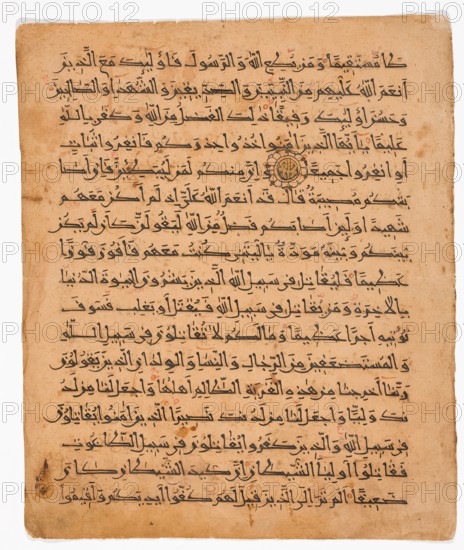 طا مستقيما ومن يطع الله والرسول فأوليك مع الذين
أنعم الله عليهم من النبيين والصديقين والشهدا والصالحين
وحسن أوليك رفيقا ذلك الفضل من الله وكفى بالله
عليما يأيها الذين آمنوا خذوا حذركم فانفروا ثبات
أو انفروا جميعا وإن منكم لمن ليبطئن فإن أصا
بتكم مصيبة قال قد أنعم الله علي إذ لم أكن معهم
شهيدا ولين أصابكم فضل من الله ليقولن كأن لم يكن
بينكم وبينه مودة يليتني كنت معهم فأفوز فوزا
عظيما فليقاتل في سبيل الله الذين يشرون الحيوة الدنيا
بالآخرة ومن يقاتل في سبيل الله فيقتل أو يغلب فسوف
نؤتيه أجرا عظيما وما لكم لا تقاتلون في سبيل الله
والمستضعفين من الرجال والنسا والولدان الذين يقولون
ربنا أخرجنا من هذه القرية الظالم أهلها واجعل لنا من لد
نك وليا واجعل لنا من لدنك نصيرا الذين آمنوا يقاتلون
في سبيل الله والذين كفروا يقاتلون في سبيل الطاغوت
فقاتلوا أوليا الشيطان إن كيد الشيطان كان
ضعيفا ألم تر إلى الذين قيل لهم كفوا أيديكم وأقيموا
PHOTO12